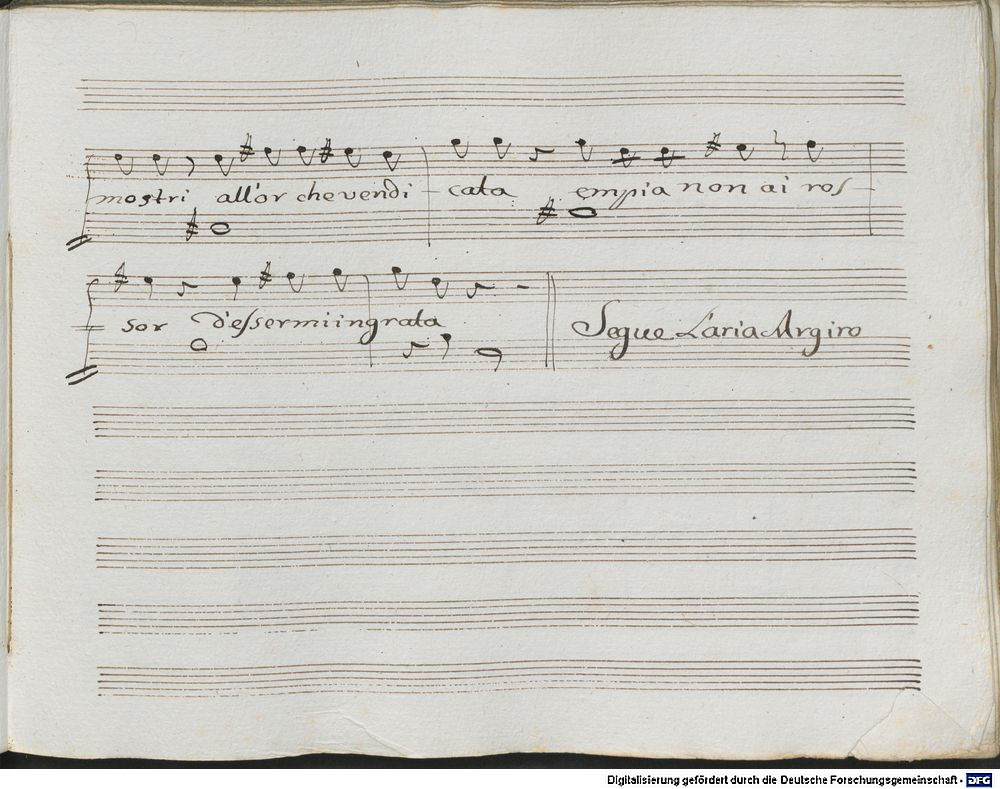 mostri all'or che vendi - cata empia non ai ros -
sor d'essermi ingrata Segue L'aria Argiro
Digitalisierung gefördert durch die Deutsche Forschungsgemeinschaft - DFG